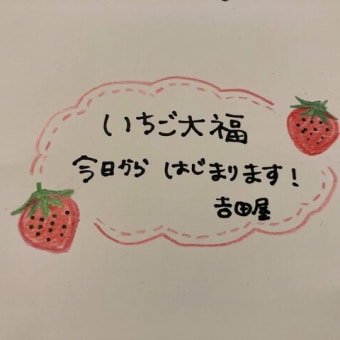 いちご大福
今日から はじまります!
吉田屋